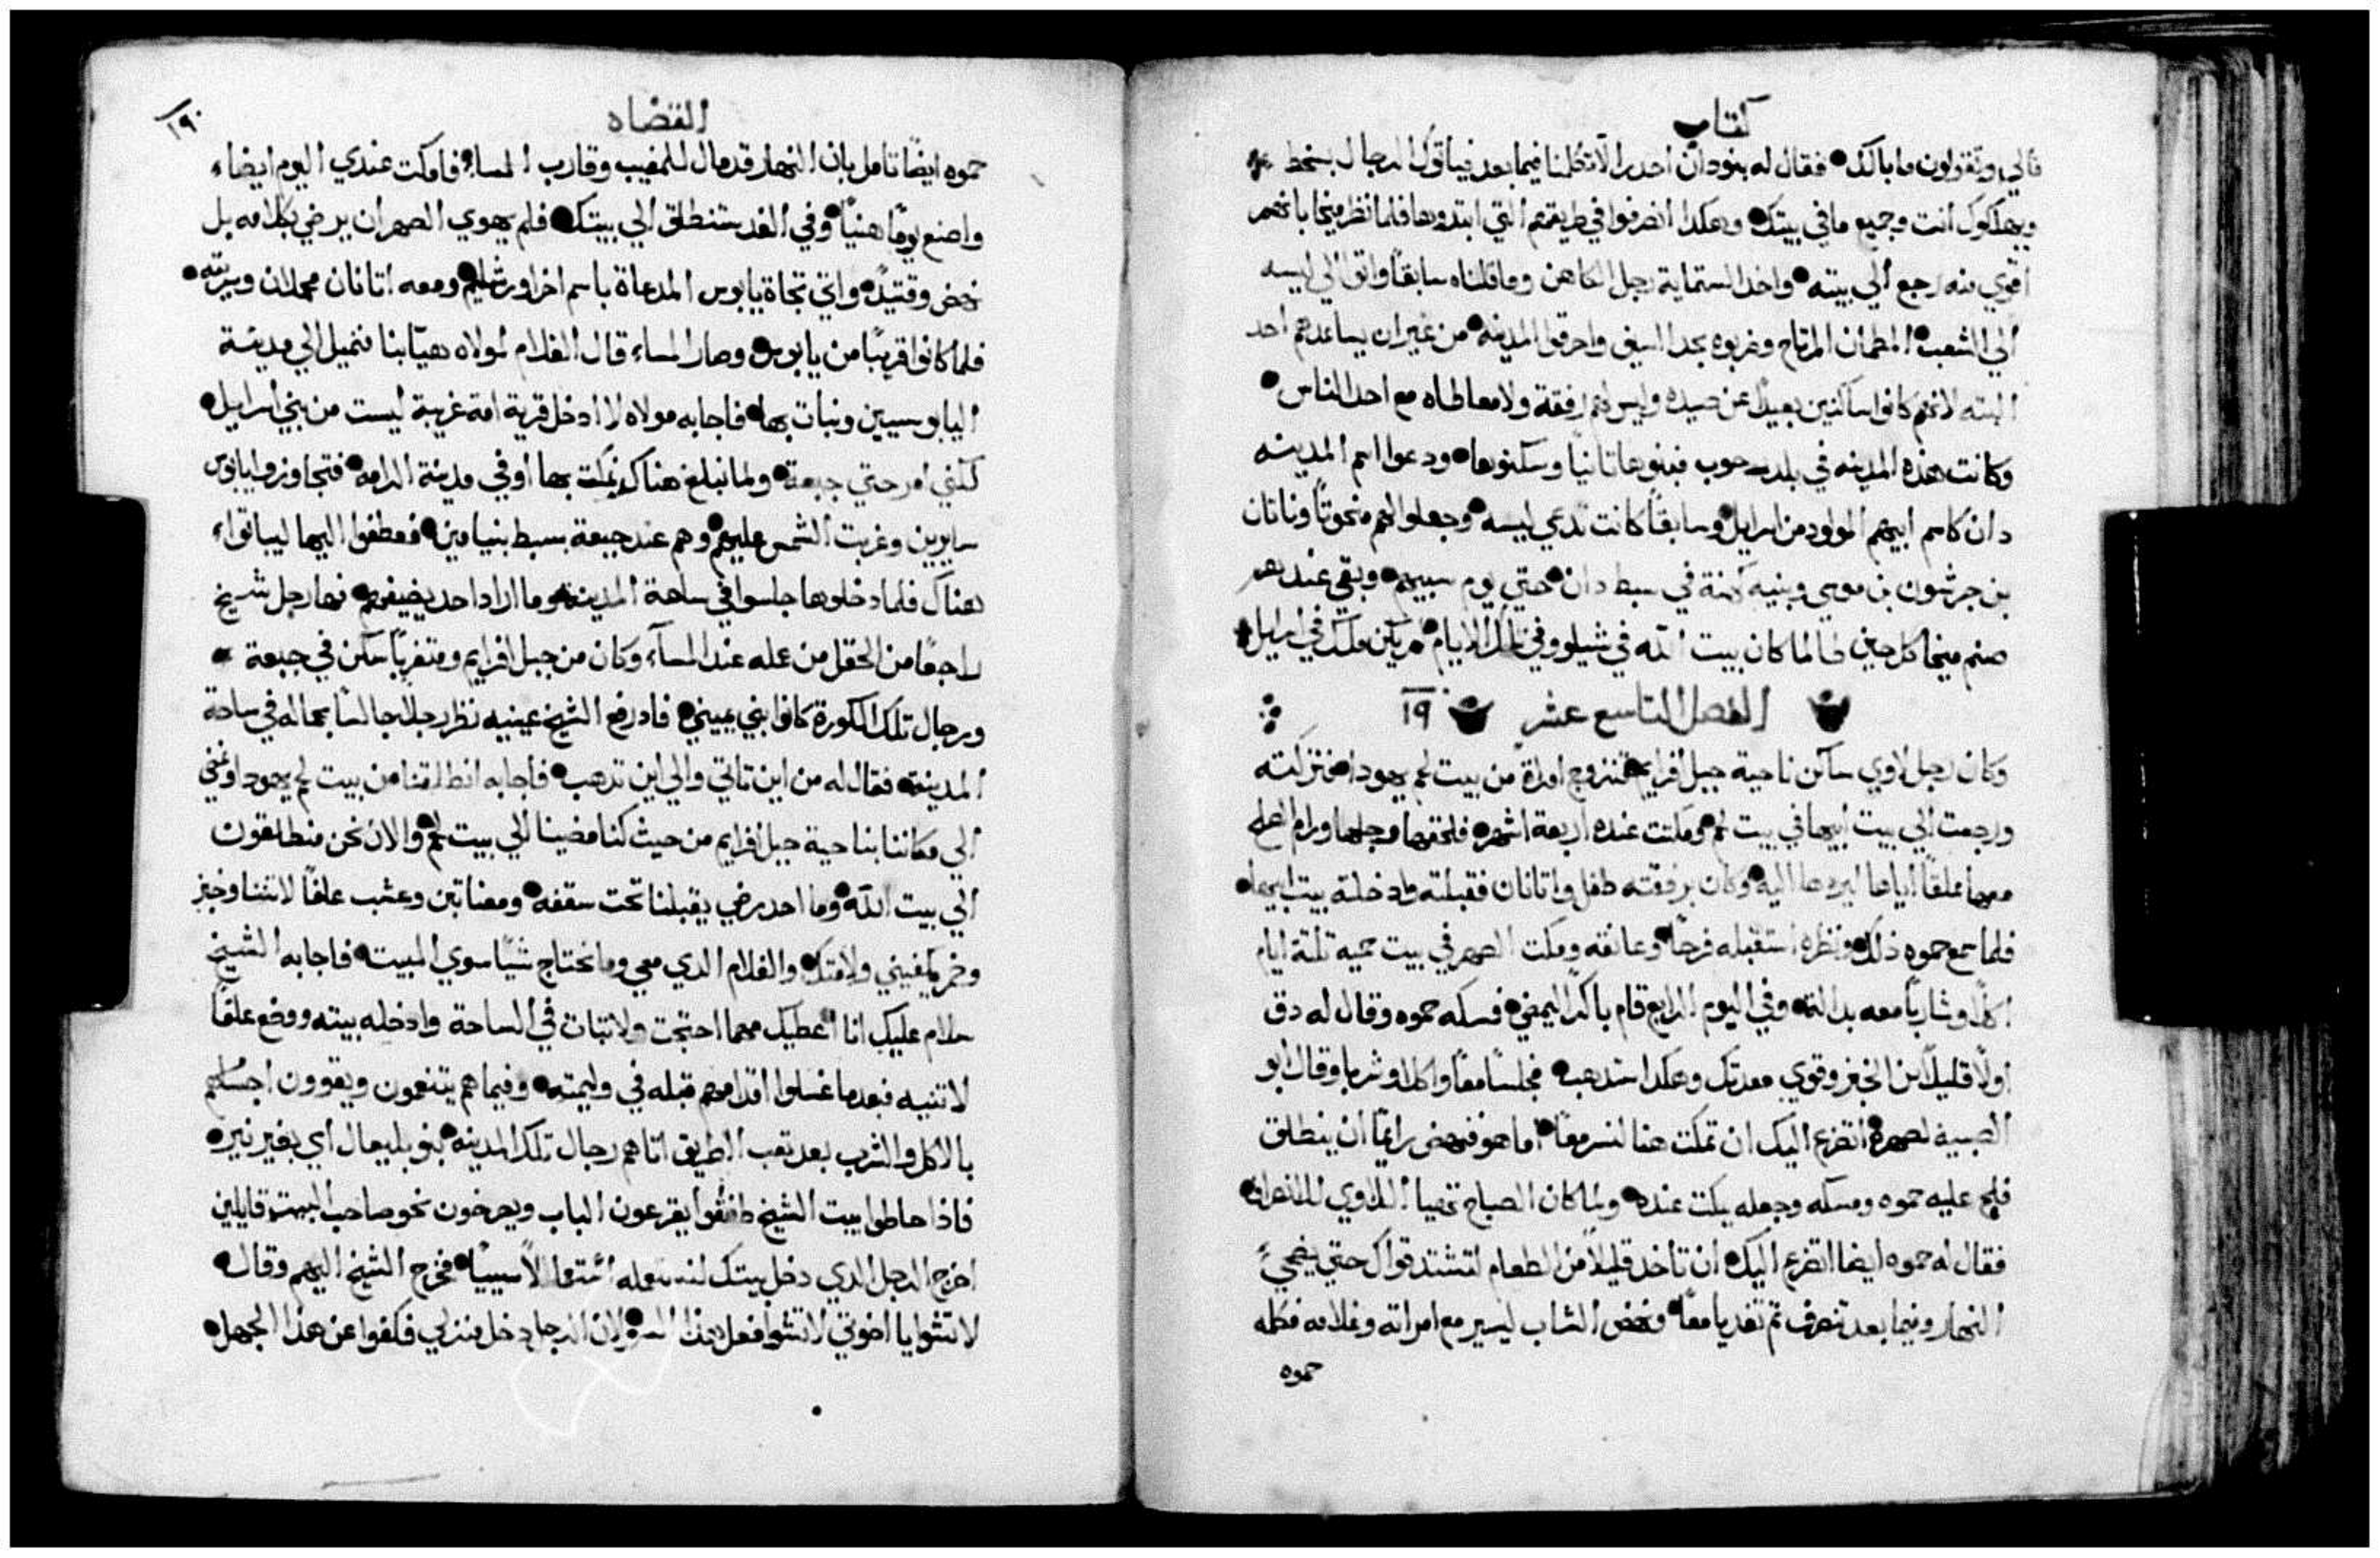 كتاب
قالي وتقولون ما بالك فقال له بنو دان احدر الا تكلمنا فيما بعد فياتوك الرجال بسخط
ويهلكوك انت وجميع ما في بيتك وهكدا انصرفوا في طريقهم التي ابتدوها فلما نظر ميخا بانهم
اقوي منه رجع الي بيته واخد الستماية رجل الكاهن وما قلناه سابقًا واتوا الي ليسه
الي الشعب المطمان المرتاح وضربوه بحد السيف واحرقوا المدينه من غير ان يساعدهم احد
البته لانهم كانوا ساكنين بعيدًا عن صيده وليس لهم رفقة ولا معاطاه مع احد الناس
وكانت هذه المدينه في بلد رحوب فبنوها تانيًا وسكنوها ودعوا اسم المدينه
دان كاسم ابيهم المولود من اسرايل وسابقًا كانت تدعي ليسه وجعلوا لهم منحوتًا وناتان
بن جرشون بن موسي وبنيه كهنة في سبط دان حتي يوم سبيهم وبقي عندهم
صنم ميخا كل حين طالما كان بيت الله في شيلو وفي تلك الايام لم يكن ملك في اسرايل
الفصل التاسع عشر ١٩
وكان رجل لاوي ساكن ناحية جبل افرايم فتزوج امراة من بيت لحم يهودا فتركته
ورجعت الي بيت ابيها في بيت لحم ومكتت عنده اربعة اشهر فلحقها رجلها ورام الصلح
معها مملقًا اياها ليردها اليه وكان برفقته طفل واتانان فقبلته وادخلته بيت ابيها
فلما سمع حموه ذلك ونظره استقبله فرحًا وعانقه ومكت الصهر في بيت حميه تلتة ايام
اكلًا وشاربًا معه بدالة وفي اليوم الرابع قام باكرًا ليمضي فمسكه حموه وقال له دق
اولًا قليلًا من الخبز وقوي معدتك وهكدا ستدهب فجلسا معًا واكلا وشربا وقال ابو
الصبية لصهره اتضرع اليك ان تمكت هنا لنسر معًا اما هو فنهض رايمًا ان ينطلق
فلح عليه حموه ومسكه وجعله يمكت عنده ولما كان الصباح تهيا اللاوي للانصراف
فقال له حموه ايضا اتضرع اليك ان تاخد قليلًا من الطعام لتشتد قواك حتي يضحي
النهار وفيما بعد تنصرف تم تغديا معًا ونهض الشاب ليسير مع امراته وغلامه فكلمه
حموه
القضاه
١٩٠
حموه ايضًا تامل بان النهار قد مال للمغيب وقارب المسا فامكت عندي اليوم ايضاء
واصنع يومًا هنيًا وفي الغد ستنطلق الي بيتك فلم يهوي الصهر ان يرضي بكلامه بل
نهض وقتيدٍ واتي تجاة يابوس المدعاة باسم اخر اورشليم ومعه اتانان محملان وسريته
فلما كانوا قريبًا من يابوس وصار المساء قال الغلام لمولاه هيّا بنا فنميل الي مدينة
اليابوسيين ونبات بها فاجابه مولاه لا ادخل قرية امة غريبة ليست من بني اسرايل
لكنني امر حتي جبعة ولما نبلغ هناك نمكت بها او في مدينة الرامه فتجاوزوا يابوس
سايرين وغربت الشمس عليهم وهم عند جبعة بسبط بنيامين فعطفوا اليها ليباتواء
هناك فلما دخلوها جلسوا في ساحة المدينه وما اراد احد يضيفهم فها رجل شيخ
راجعًا من الحقل من عمله عند المسآء وكان من جبل افرايم ومتغربًا ساكن في جبعة
ورجال تلك الكورة كانوا بني يميني فاد رفع الشيخ عينيه نظر رجلًا جالسًا بحماله في ساحة
المدينه فقال له من اين تاتي والي اين تدهب فاجابه انطلقنا من بيت لحم يهودا ونمضي
الي مكاننا بناحية جبل افرايم من حيث كنا مضينا الي بيت لحم والان نحن منطلقون
الي بيت الله وما احد رضي يقبلنا تحت سقفه ومعنا تبن وعشب علفًا لاتننا وخبز
وخمر يكفيني ولامتك والغلام الدي معي وما نحتاج شيًا سوي المبيت فاجابه الشيخ
سلام عليك انا اعطيك مهما احتجت ولا تبات في الساحة وادخله بيته ووضع علفًا
لاتنيه فبعدما غسلوا اقدامهم قبله في وليمته وفيما هم يتنعمون ويقوون اجسامهم
بالاكل والشرب بعد تعب الطريق اتاهم رجال تلك المدينه بنو بليعال اي بغير نير
فاذا حاطوا بيت الشيخ طفقوا يقرعون الباب ويصرخون نحو صاحب البيت قايلين
اخرج الرجل الدي دخل بيتك فخرج الشيخ اليهم وقال
لا تشوا يا اخوتي لا تشوا فعل هذا لان الرجل دخل منزلي فكفوا عن هذا الجهل